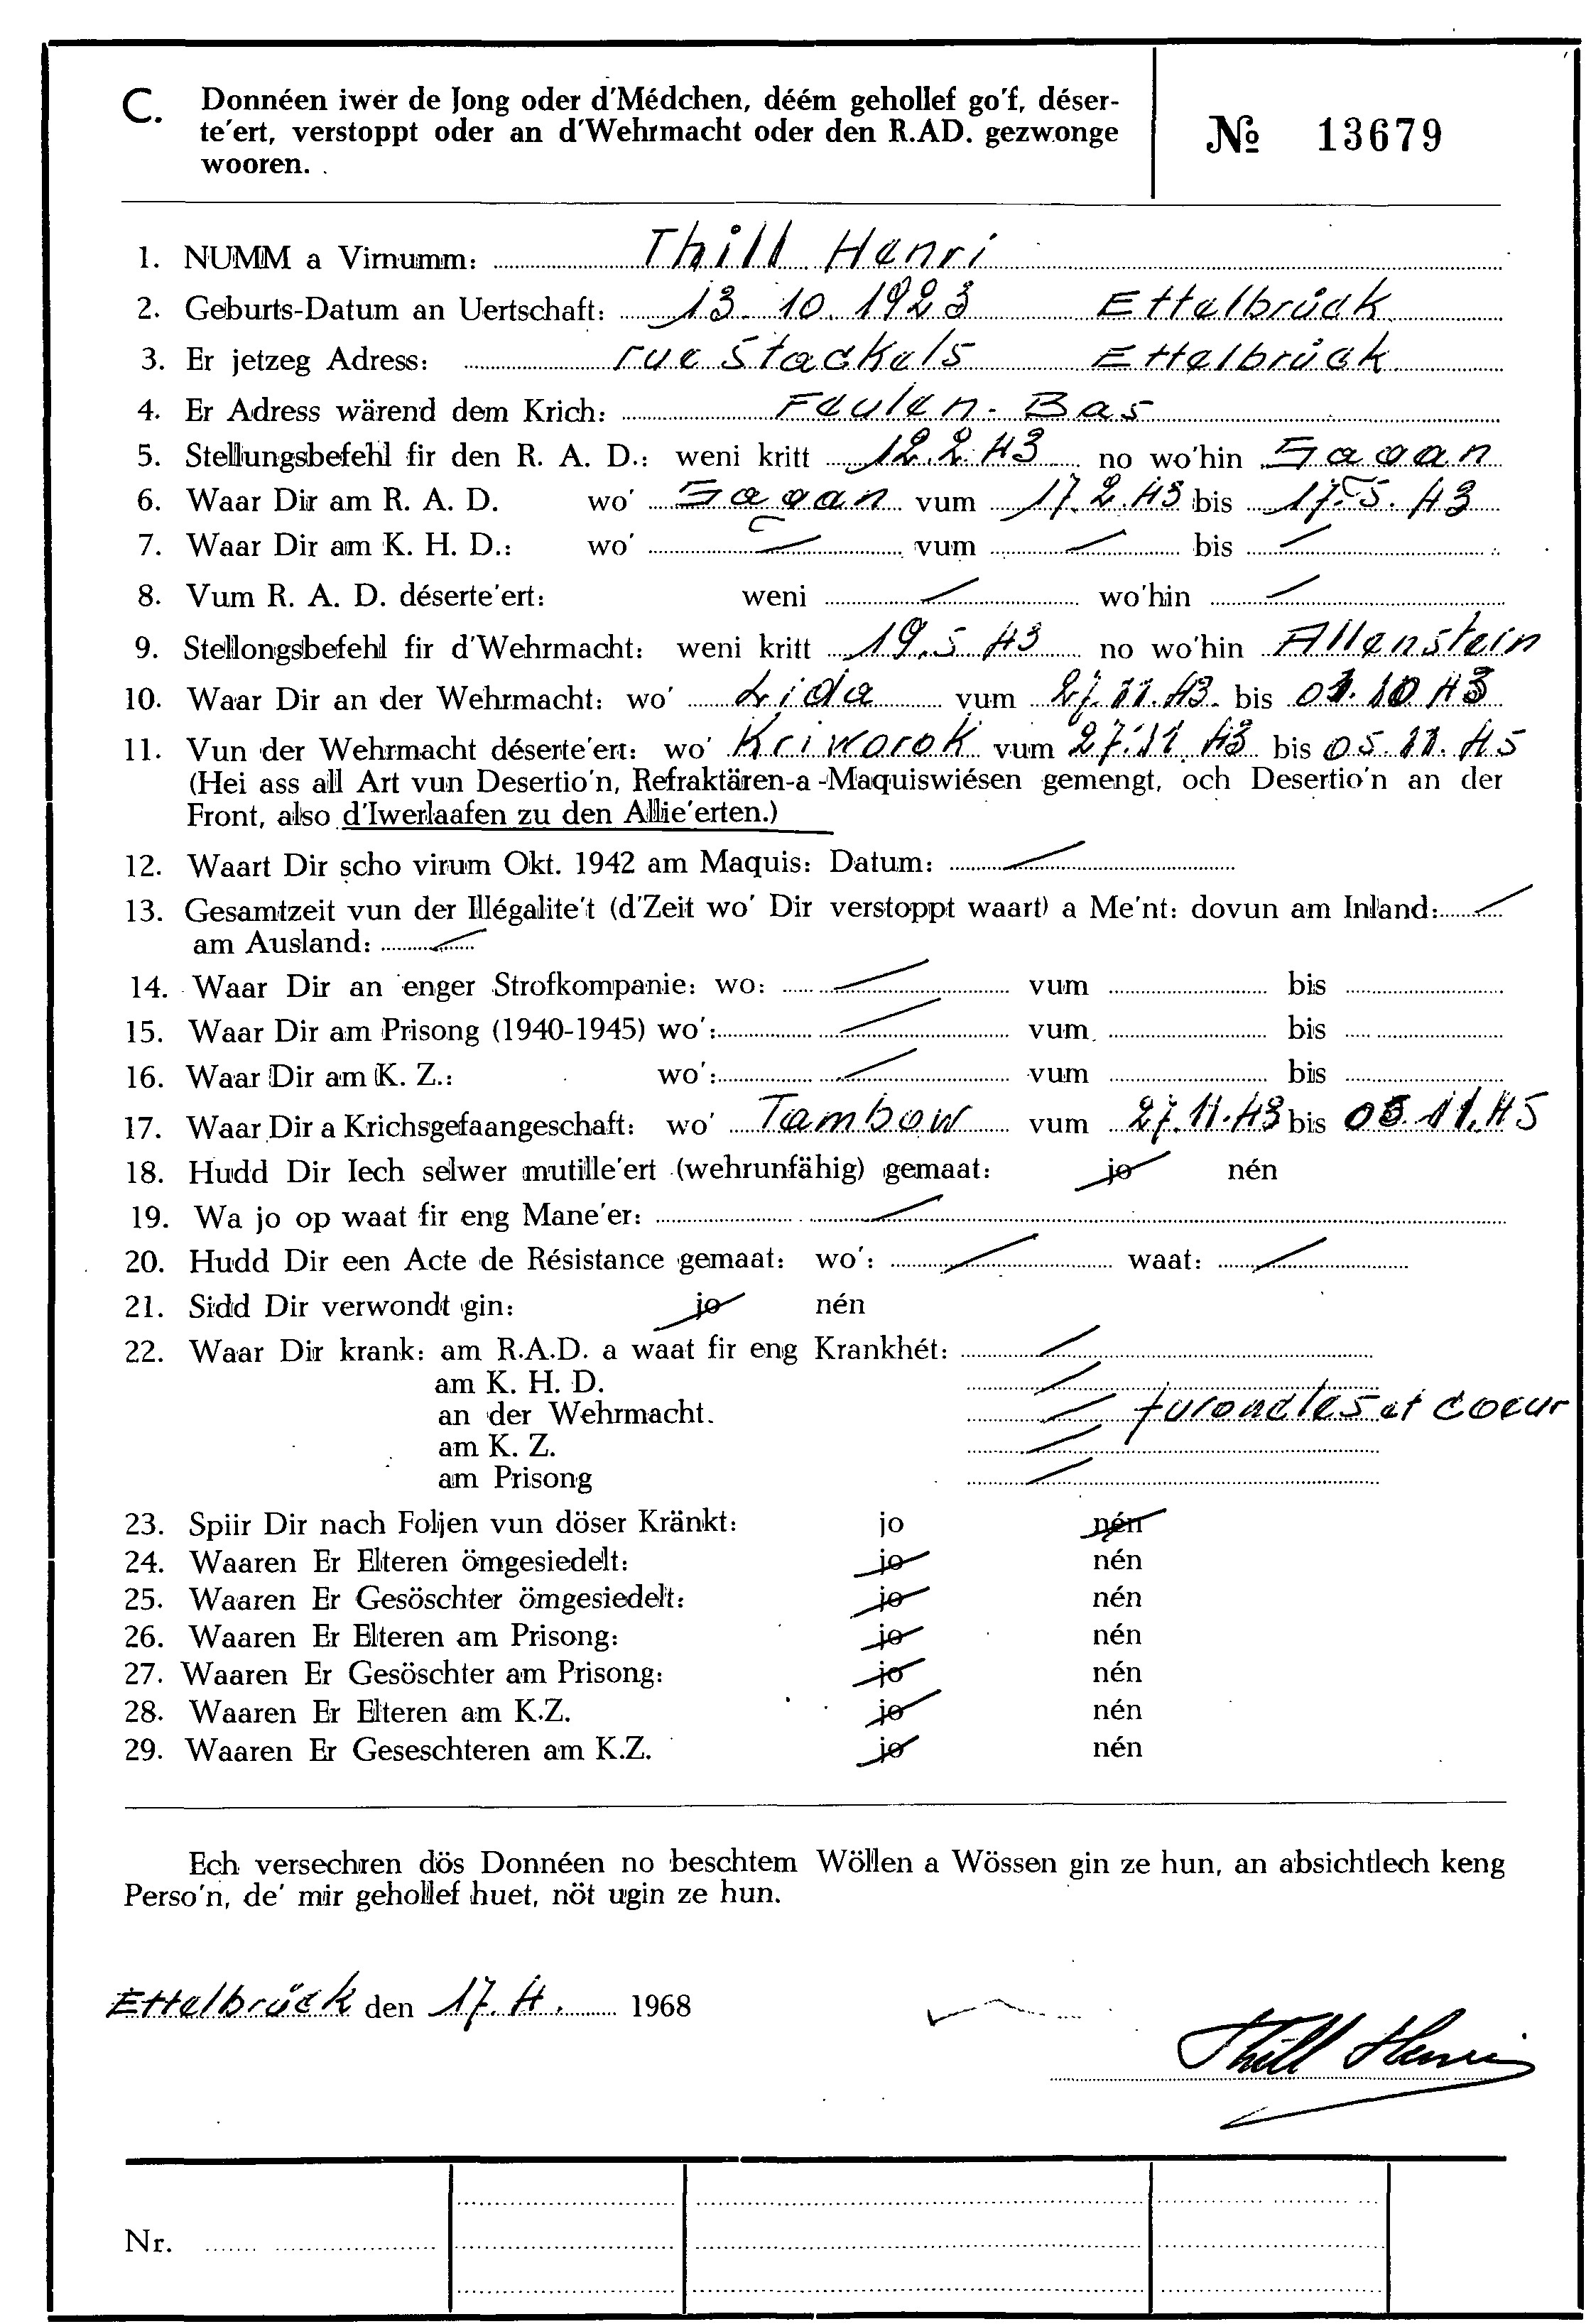 C. Donnéen iwer de Jong oder d'Médchen, déém gehollef go'f, déser-
te'ert, verstoppt oder an d'Wehrmacht oder den R.AD. gezwonge
wooren.
№ 13679
1. NUMM a Virnumm: Thill Henri
2. Geburts-Datum an Uertschaft: 13. 10. 1923 Ettelbrück
3. Er jetzeg Adress: rue Stackels Ettelbrück
4. Er Adress wärend dem Krich: Feulen-Bas
5. Stellungsbefehl fir den R. A. D.: weni kritt 12.2.43 no wo'hin Sagan
6. Waar Dir am R. A. D. wo' Sagan vum 17.2.43 bis 17.5.43
7. Waar Dir am K. H. D.: wo' vum bis
8. Vum R. A. D. déserte'ert: weni wo'hin
9. Stellongsbefehl fir d'Wehrmacht: weni kritt 19.5.43 no wo'hin Allenstein
10. Waar Dir an der Wehrmacht: wo' Lida vum 27.11.43. bis 10.43
11. Vun der Wehrmacht déserte'ert: wo' Kriworok vum 27.11.43 bis 05.11.45
(Hei ass all Art vun Desertio'n, Refraktären-a-Maquiswiésen gemengt, och Desertio'n an der
Front, also d'Iwerlaafen zu den Allie'erten.)
12. Waart Dir scho virum Okt. 1942 am Maquis: Datum:
13. Gesamtzeit vun der Illégalite't (d'Zeit wo' Dir verstoppt waart) a Me'nt: dovun am Inland:
am Ausland:
14. Waar Dir an enger Strofkompanie: wo: vum bis
15. Waar Dir am Prisong (1940-1945) wo': vum bis
16. Waar Dir am K. Z.: wo': vum bis
17. Waar Dir a Krichsgefaangeschaft: wo' Tambow vum 27.11.43 bis 05.11.45
18. Hudd Dir Iech selwer mutille'ert (wehrunfähig) gemaat: jo nén
19. Wa jo op waat fir eng Mane'er:
20. Hudd Dir een Acte de Résistance gemaat: wo': waat:
21. Sidd Dir verwondt gin: jo nén
22. Waar Dir krank: am R.A.D. a waat fir eng Krankhét:
am K. H. D.
an der Wehrmacht. furoncles et coeur
am K. Z.
am Prisong
23. Spiir Dir nach Foljen vun döser Kränkt: jo nén
24. Waaren Er Elteren ömgesiedelt: jo nén
25. Waaren Er Gesöschter ömgesiedelt: jo nén
26. Waaren Er Elteren am Prisong: jo nén
27. Waaren Er Gesöschter am Prisong: jo nén
28. Waaren Er Elteren am K.Z. jo nén
29. Waaren Er Geseschteren am K.Z. jo nén
Ech versechren dös Donnéen no beschtem Wöllen a Wössen gin ze hun, an absichtlech keng
Perso'n, de' mir gehollef huet, nöt ugin ze hun.
Ettelbrück den 17.4. 1968
Thill Henri
Nr.